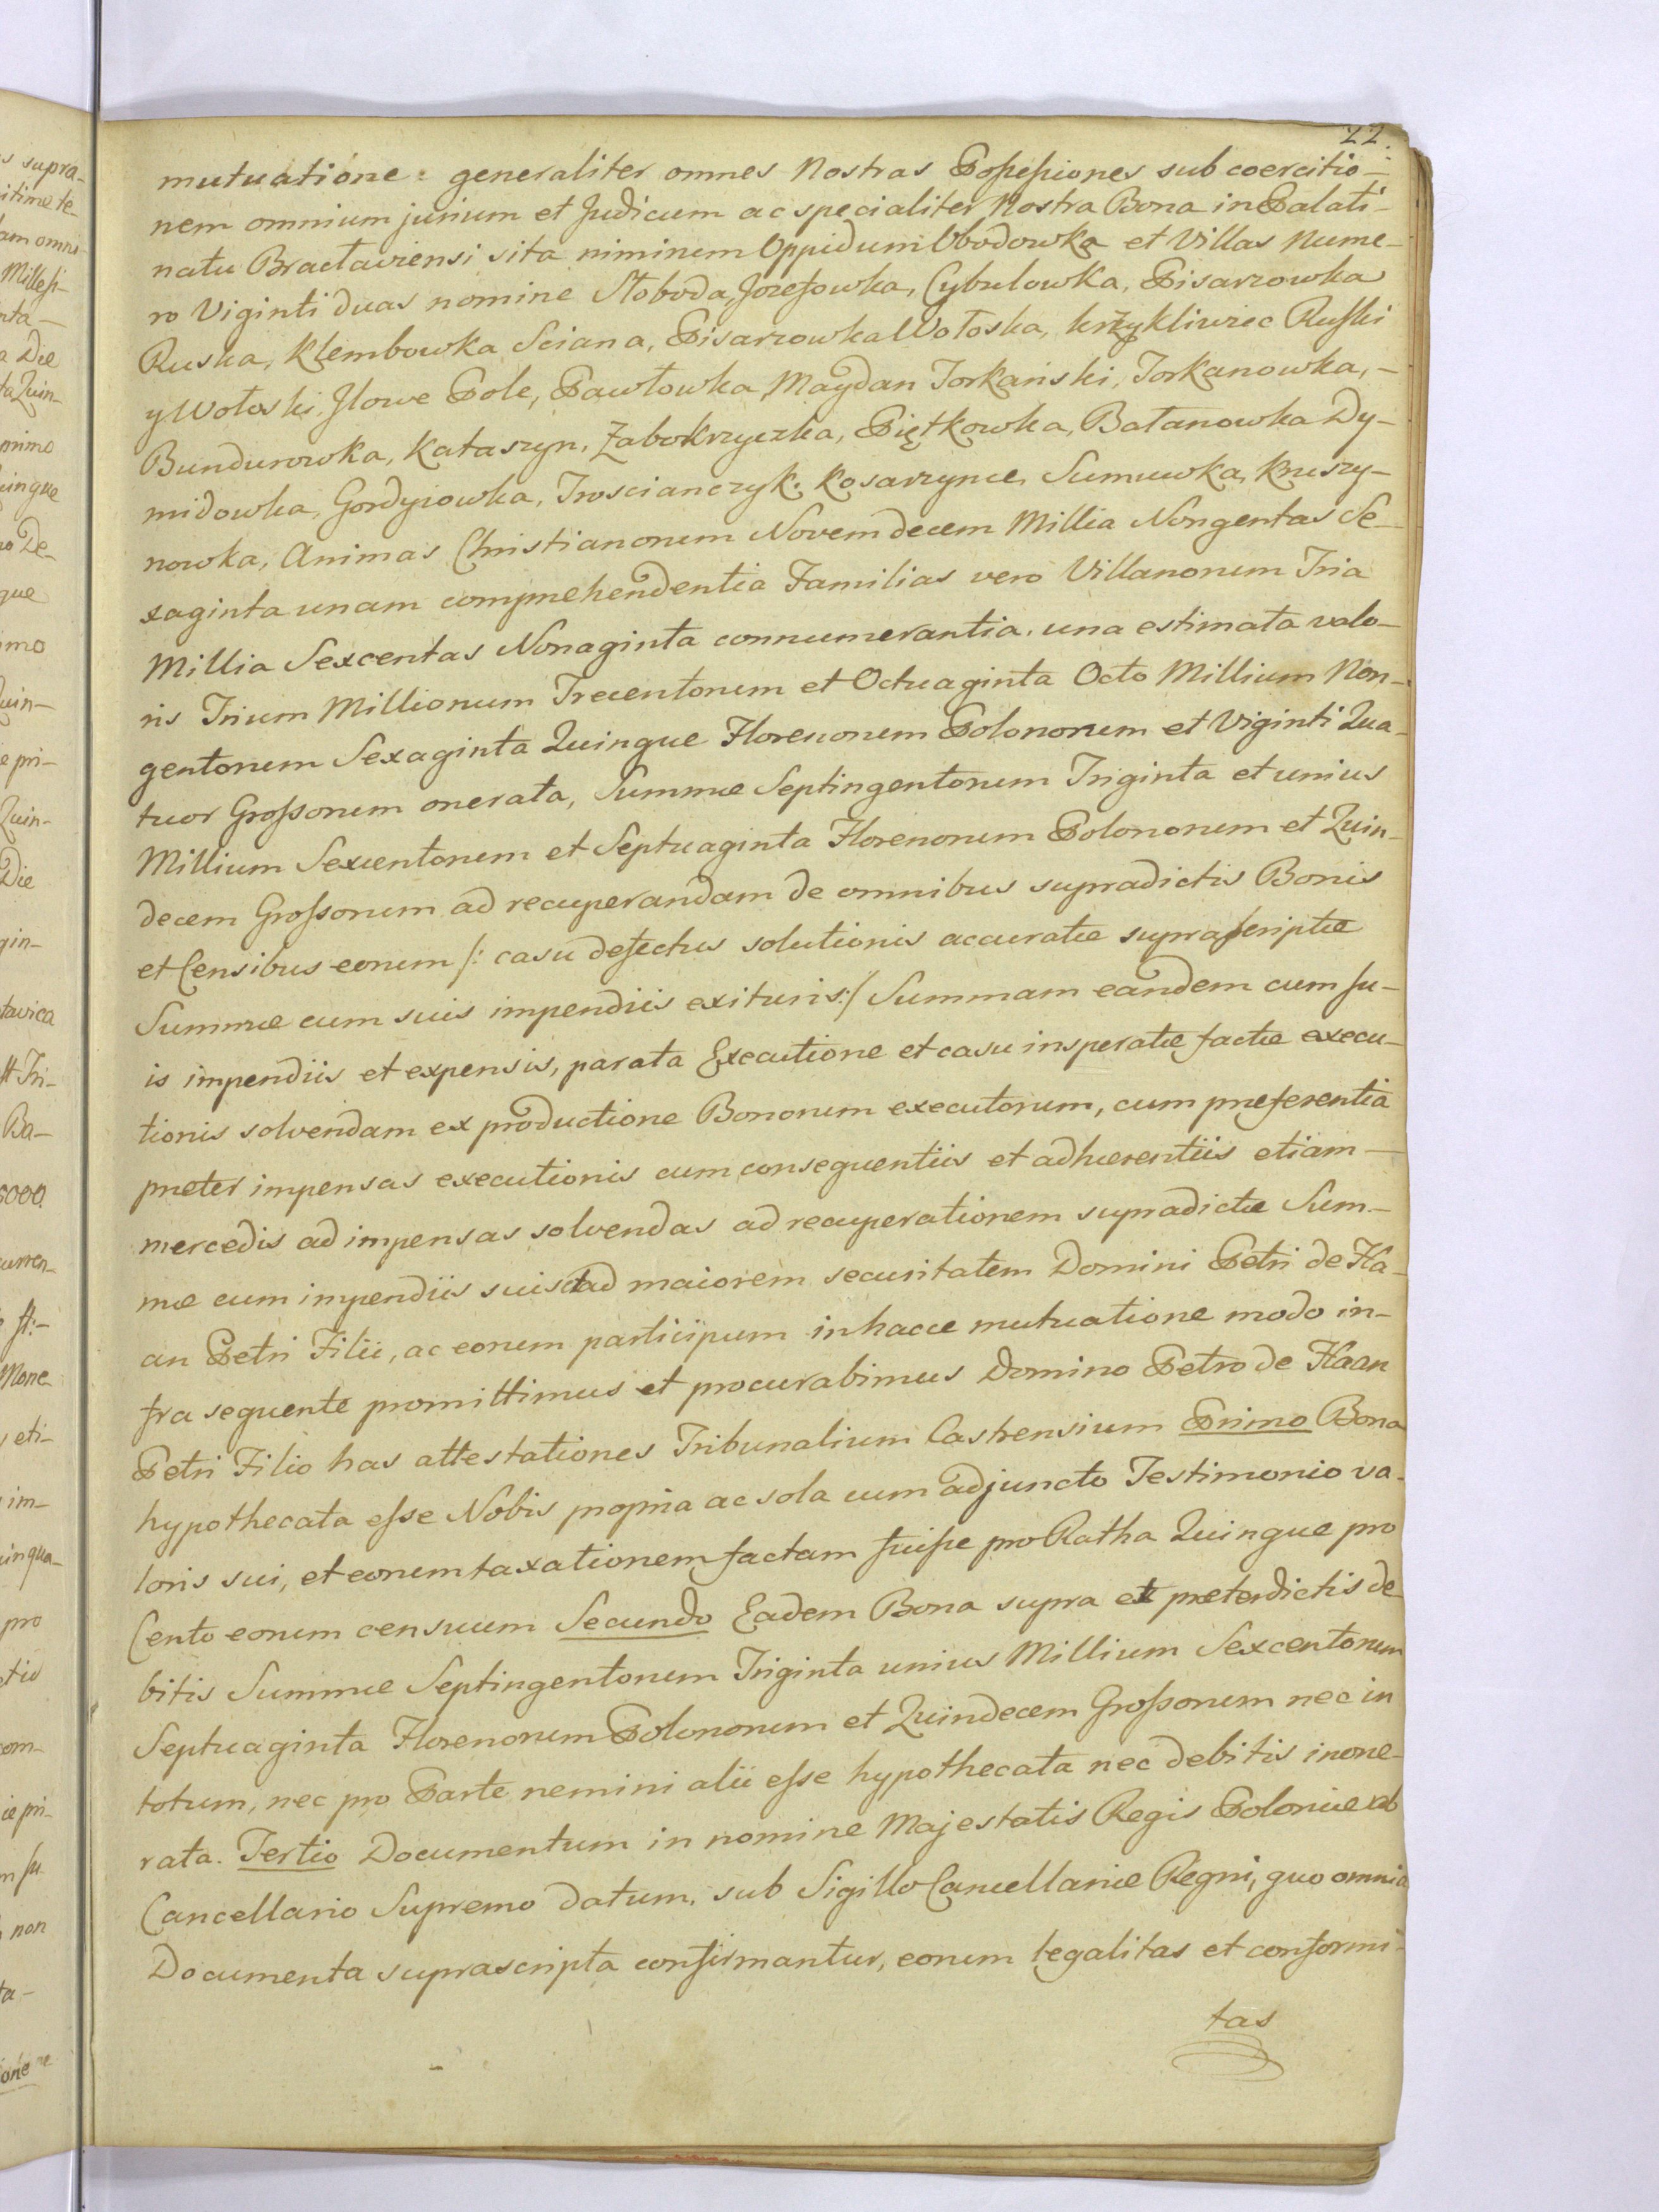 22.
mutuatione: generaliter omnes Nostras Possessiones sub coercitio-
nem omnium jurium et Judicum ac specialiter Nostra Bona in Palati-
natu Bractaviensi sita niminem Oppidum Obodowka et Villas Nume-
ro Viginti duas nomine Słoboda, Jozefowka, Cybulowka, Pisarzowka
Ruska, Klembowka Sciana, Pisarzowka Wołoska, Krzykliwiec Ruski
y Wołoski, Jlowe Pole, Pawłowka, Maydan Torkański, Torkanowka,-
Bundurowka, Kataszyn, Zabokrzyczka, Piętkowka, Bałanowka Dy-
midowka, Gordyiowka, Troscianczyk, Kosarzynce, Sumuwka, Kruszy-
nowka, Animas Christianorum Novemdecem Millia Nongentas Se-
xaginta unam comprehendentia Familias vero Villanorum Tria
Millia Sexcentas Nonaginta connumerantia, una estimata valo-
ris Trium Millionum Trecentorum et Octuaginta Octo Millium Non-
gentorum Sexaginta Quinque Florenorum Polonorum et Viginti Qua-
tuor Grossorum onerata, Summæ Septingentorum Triginta et unius
Millium Sexcentorum et Septuaginta Florenorum Polonorum et Quin-
decem Grossorum ad recuperandam de omnibus supradictis Bonis
et Censibus eorum /: casu defectus solutionis accuratæ suprascriptæ
Summæ cum suis impendiis exituris:/ Summam eandem cum su-
is impendiis et expensis, parata Executione et casu insperatæ factæ execu-
tionis solvendam ex productione Bonorum executorum, cum præferentia
præter impensas executionis cum consequentiis et adhærentiis etiam-
mercedis ad impensas solvendas ad recuperationem supradictæ Sum-
mæ cum impendiis suis ad maiorem securitatem Domini Petri de Ha-
an Petri Filii, ac eorum participum in hacce mutuatione modo in-
fra sequente promittimus et procurabimus Domino Petro de Haan
Petri Filio has attestationes Tribunalium Castrensium Primo Bona
hypothecata esse Nobis propria ac sola cum adjuncto Testimonio va-
loris sui, et eorum taxationem factam fuisse pro Ratha Quinque pro
Cento eorum censuum Secundo Eadem Bona supra et præterdictis de-
bitis Summæ Septingentorum Triginta unius Millium Sexcentorum
Septuaginta Florenorum Polonorum et Quindecem Grossorum nec in
totum, nec pro Parte nemini alii esse hypothecata nec debitis inone-
rata. Tertio Documentum in nomine Majestatis Regis Poloniæ ab
Cancellario Supremo datum, sub Sigillo Cancellariæ Regni, quo omnia
Documenta suprascripta confirmantur, eorum legalitas et conformi-
tas